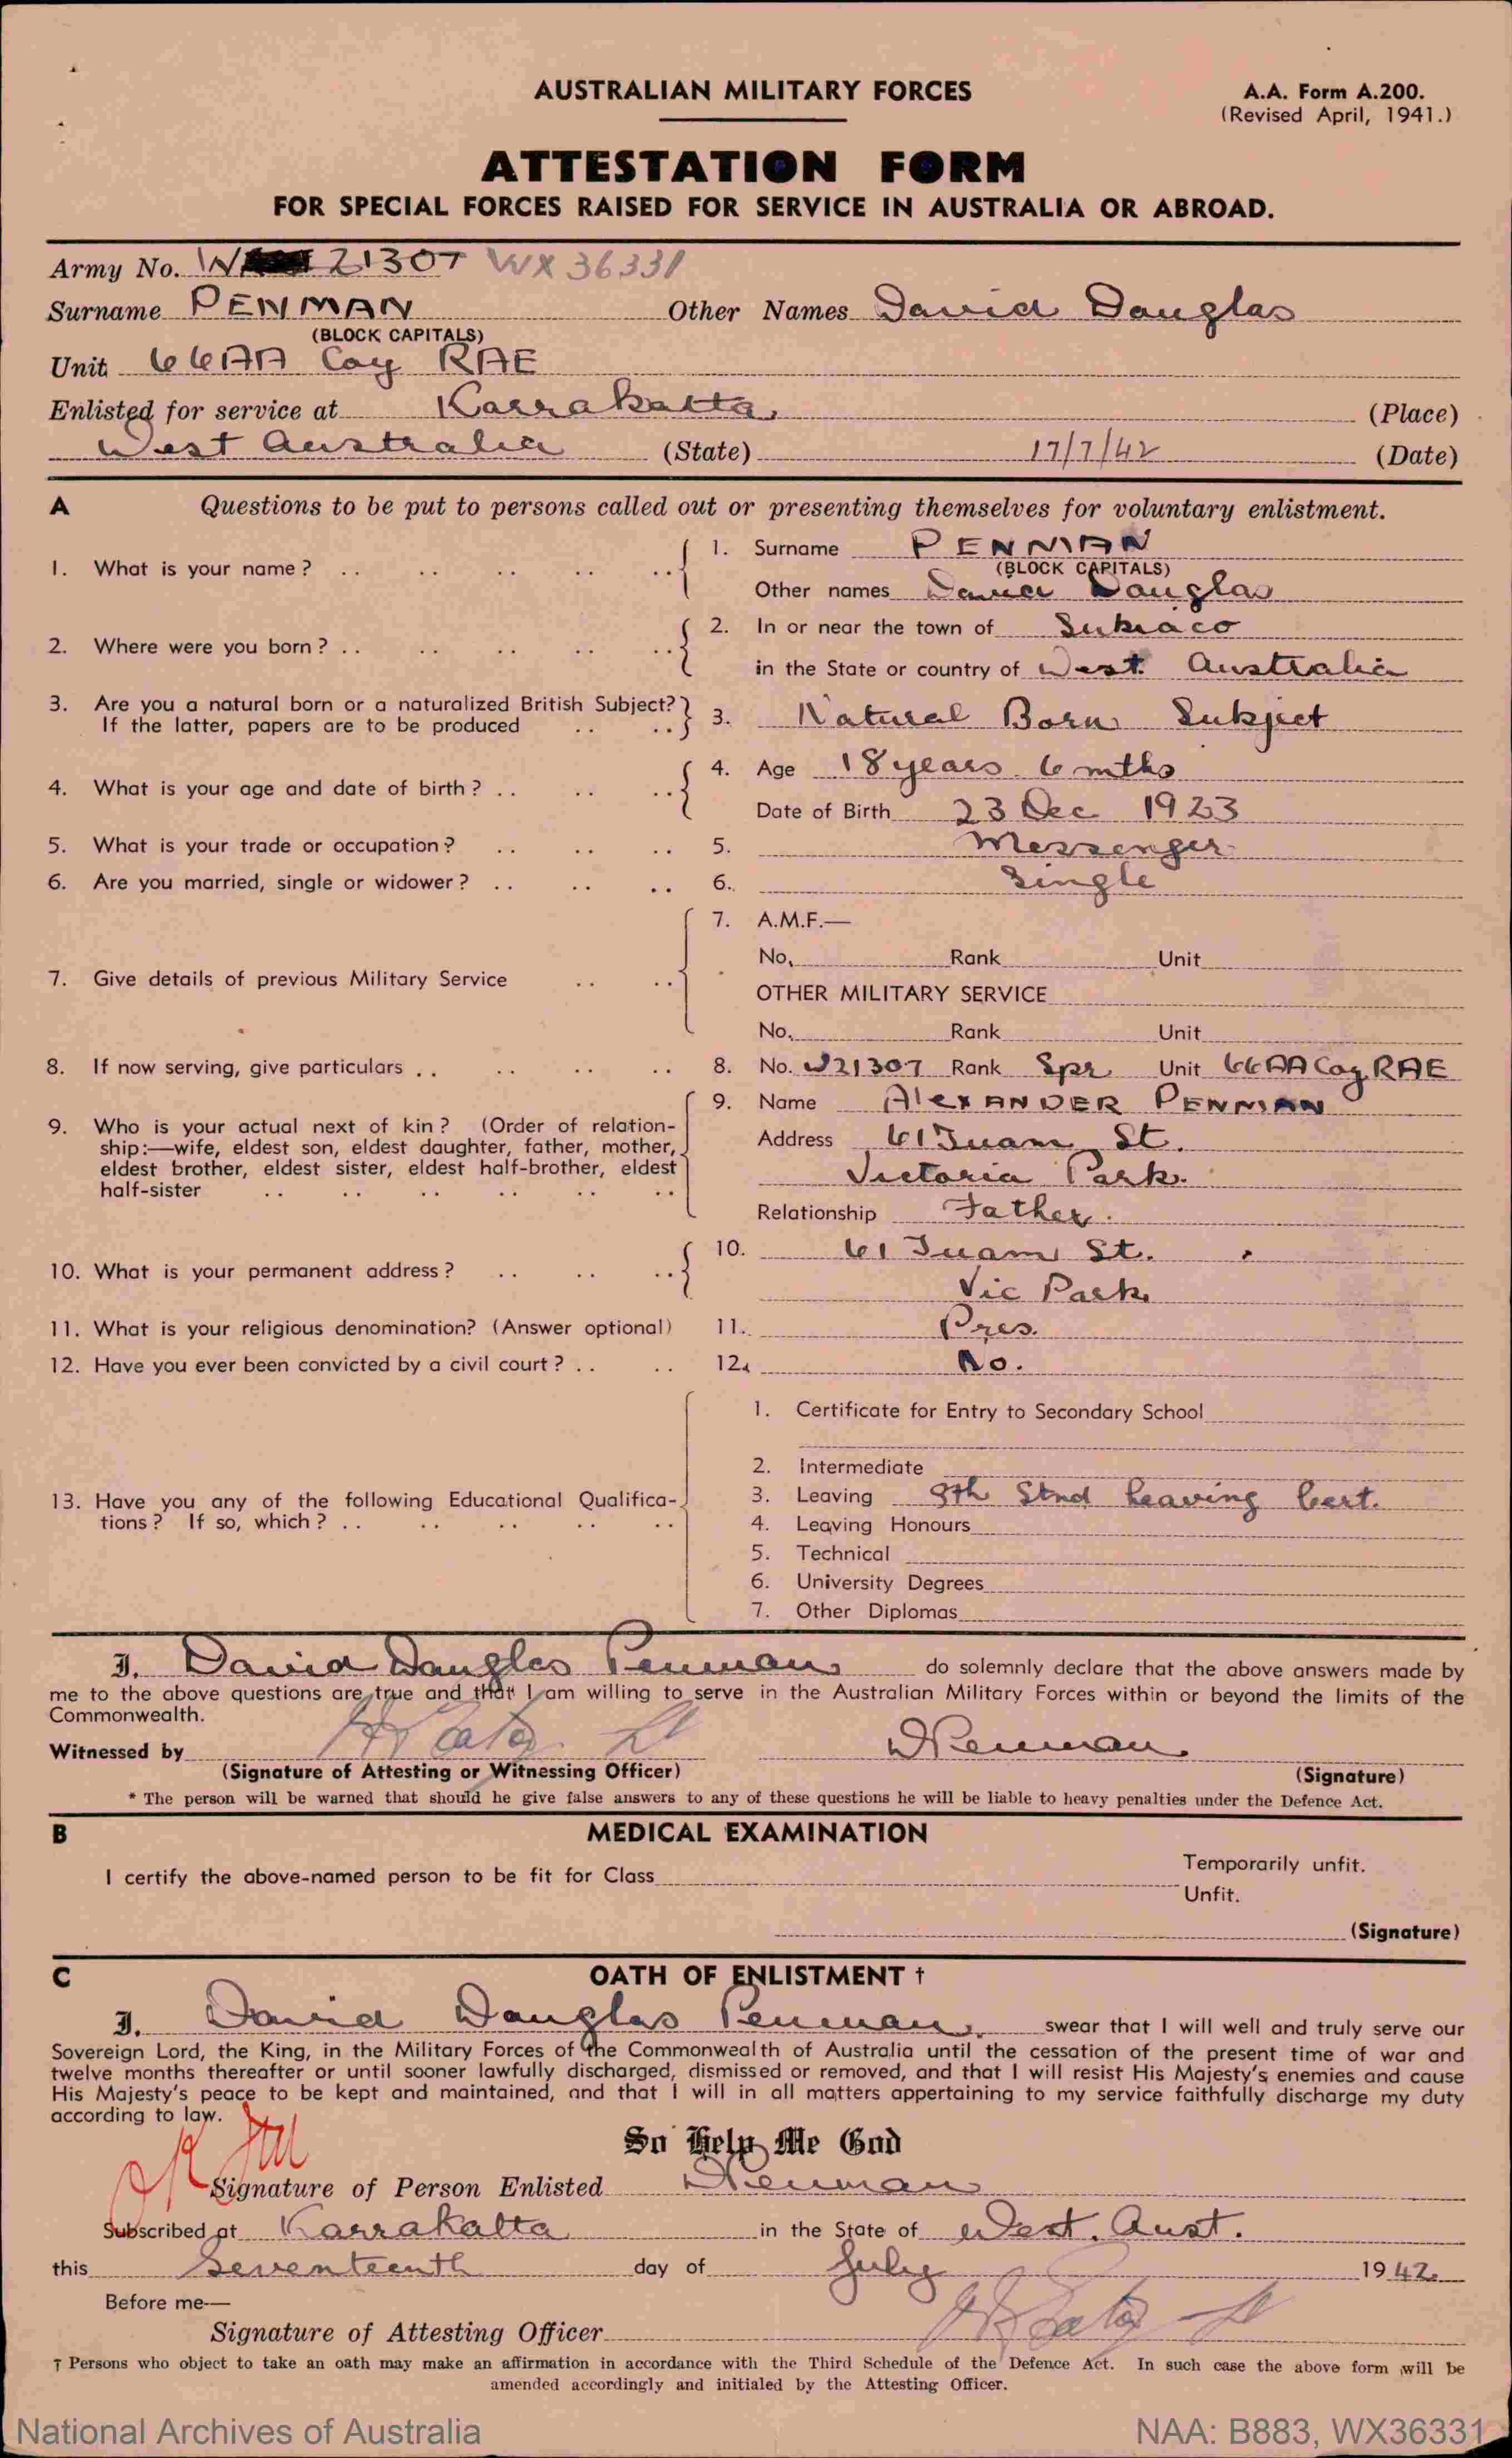 AUSTRALIAN MILITARY FORCES
A.A. Form A.200.
(Revised April, 1941.)
ATTESTATION FORM
FOR SPECIAL FORCES RAISED FOR SERVICE IN AUSTRALIA OR ABROAD.
Army No. W 21307 WX 36331
Surname PENMAN Other Names David Douglas
(BLOCK CAPITALS)
Unit 66AA Coy RAE
Enlisted for service at Karrakatta, (Place)
West Australia (State) 17/7/42 (Date)
A Questions to be put to persons called out or presenting themselves for voluntary enlistment.
1. What is your name? . . . . . . . . . . 1. Surname PENMAN
(BLOCK CAPITALS)
Other names David Douglas
2. Where were you born? . . . . . . . . . . 2. In or near the town of Subiaco
in the State or country of West. Australia
3. Are you a natural born or a naturalized British Subject? 3. Natural Born Subject
If the latter, papers are to be produced . . . .
4. What is your age and date of birth? . . . . . . 4. Age 18 years 6 mths
Date of Birth 23 Dec 1923
5. What is your trade or occupation? . . . . . . 5. Messenger
6. Are you married, single or widower? . . . . . . 6. Single
7. Give details of previous Military Service . . . . 7. A.M.F.—
No. Rank Unit
OTHER MILITARY SERVICE
No. Rank Unit
8. If now serving, give particulars . . . . . . . . 8. No. W21307 Rank Spr Unit 66AA Coy RAE
9. Who is your actual next of kin? (Order of relation- 9. Name AlexANDER PENMAN
ship:—wife, eldest son, eldest daughter, father, mother, Address 61 Tuam St.
eldest brother, eldest sister, eldest half-brother, eldest Victoria Park.
half-sister . . . . . . . . . . . . Relationship Father.
10. What is your permanent address? . . . . . . 10. 61 Tuam St.
Vic Park
11. What is your religious denomination? (Answer optional) 11. Pres.
12. Have you ever been convicted by a civil court? . . . . 12. No.
13. Have you any of the following Educational Qualifica-
tions? If so, which? . . . . . . . . . .
1. Certificate for Entry to Secondary School
2. Intermediate
3. Leaving 8th Stnd Leaving Cert.
4. Leaving Honours
5. Technical
6. University Degrees
7. Other Diplomas
I. David Douglas Penman do solemnly declare that the above answers made by
me to the above questions are true and that I am willing to serve in the Australian Military Forces within or beyond the limits of the
Commonwealth.
Witnessed by Lt DPenman
(Signature of Attesting or Witnessing Officer) (Signature)
* The person will be warned that should he give false answers to any of these questions he will be liable to heavy penalties under the Defence Act.
B MEDICAL EXAMINATION
I certify the above-named person to be fit for Class Temporarily unfit.
Unfit.
(Signature)
C OATH OF ENLISTMENT †
I. David Douglas Penman. swear that I will well and truly serve our
Sovereign Lord, the King, in the Military Forces of the Commonwealth of Australia until the cessation of the present time of war and
twelve months thereafter or until sooner lawfully discharged, dismissed or removed, and that I will resist His Majesty's enemies and cause
His Majesty's peace to be kept and maintained, and that I will in all matters appertaining to my service faithfully discharge my duty
according to law.
So Help Me God
Signature of Person Enlisted DPenman
Subscribed at Karrakatta in the State of West. Aust.
this Seventeenth day of July 1942
Before me—
Signature of Attesting Officer Lt
† Persons who object to take an oath may make an affirmation in accordance with the Third Schedule of the Defence Act. In such case the above form will be
amended accordingly and initialed by the Attesting Officer.
National Archives of Australia NAA: B883, WX36331